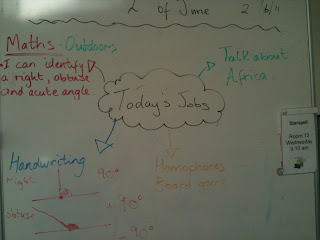 of June
Maths - Outdoors
• I can identify
a right, obtuse
and acute angle
Talk about
Africa.
Today's Jobs
Handwriting
Homophones
Board game
right
90°
obtuse
+ 90°
- 90°
Room 12
Wednesday
9.10 am